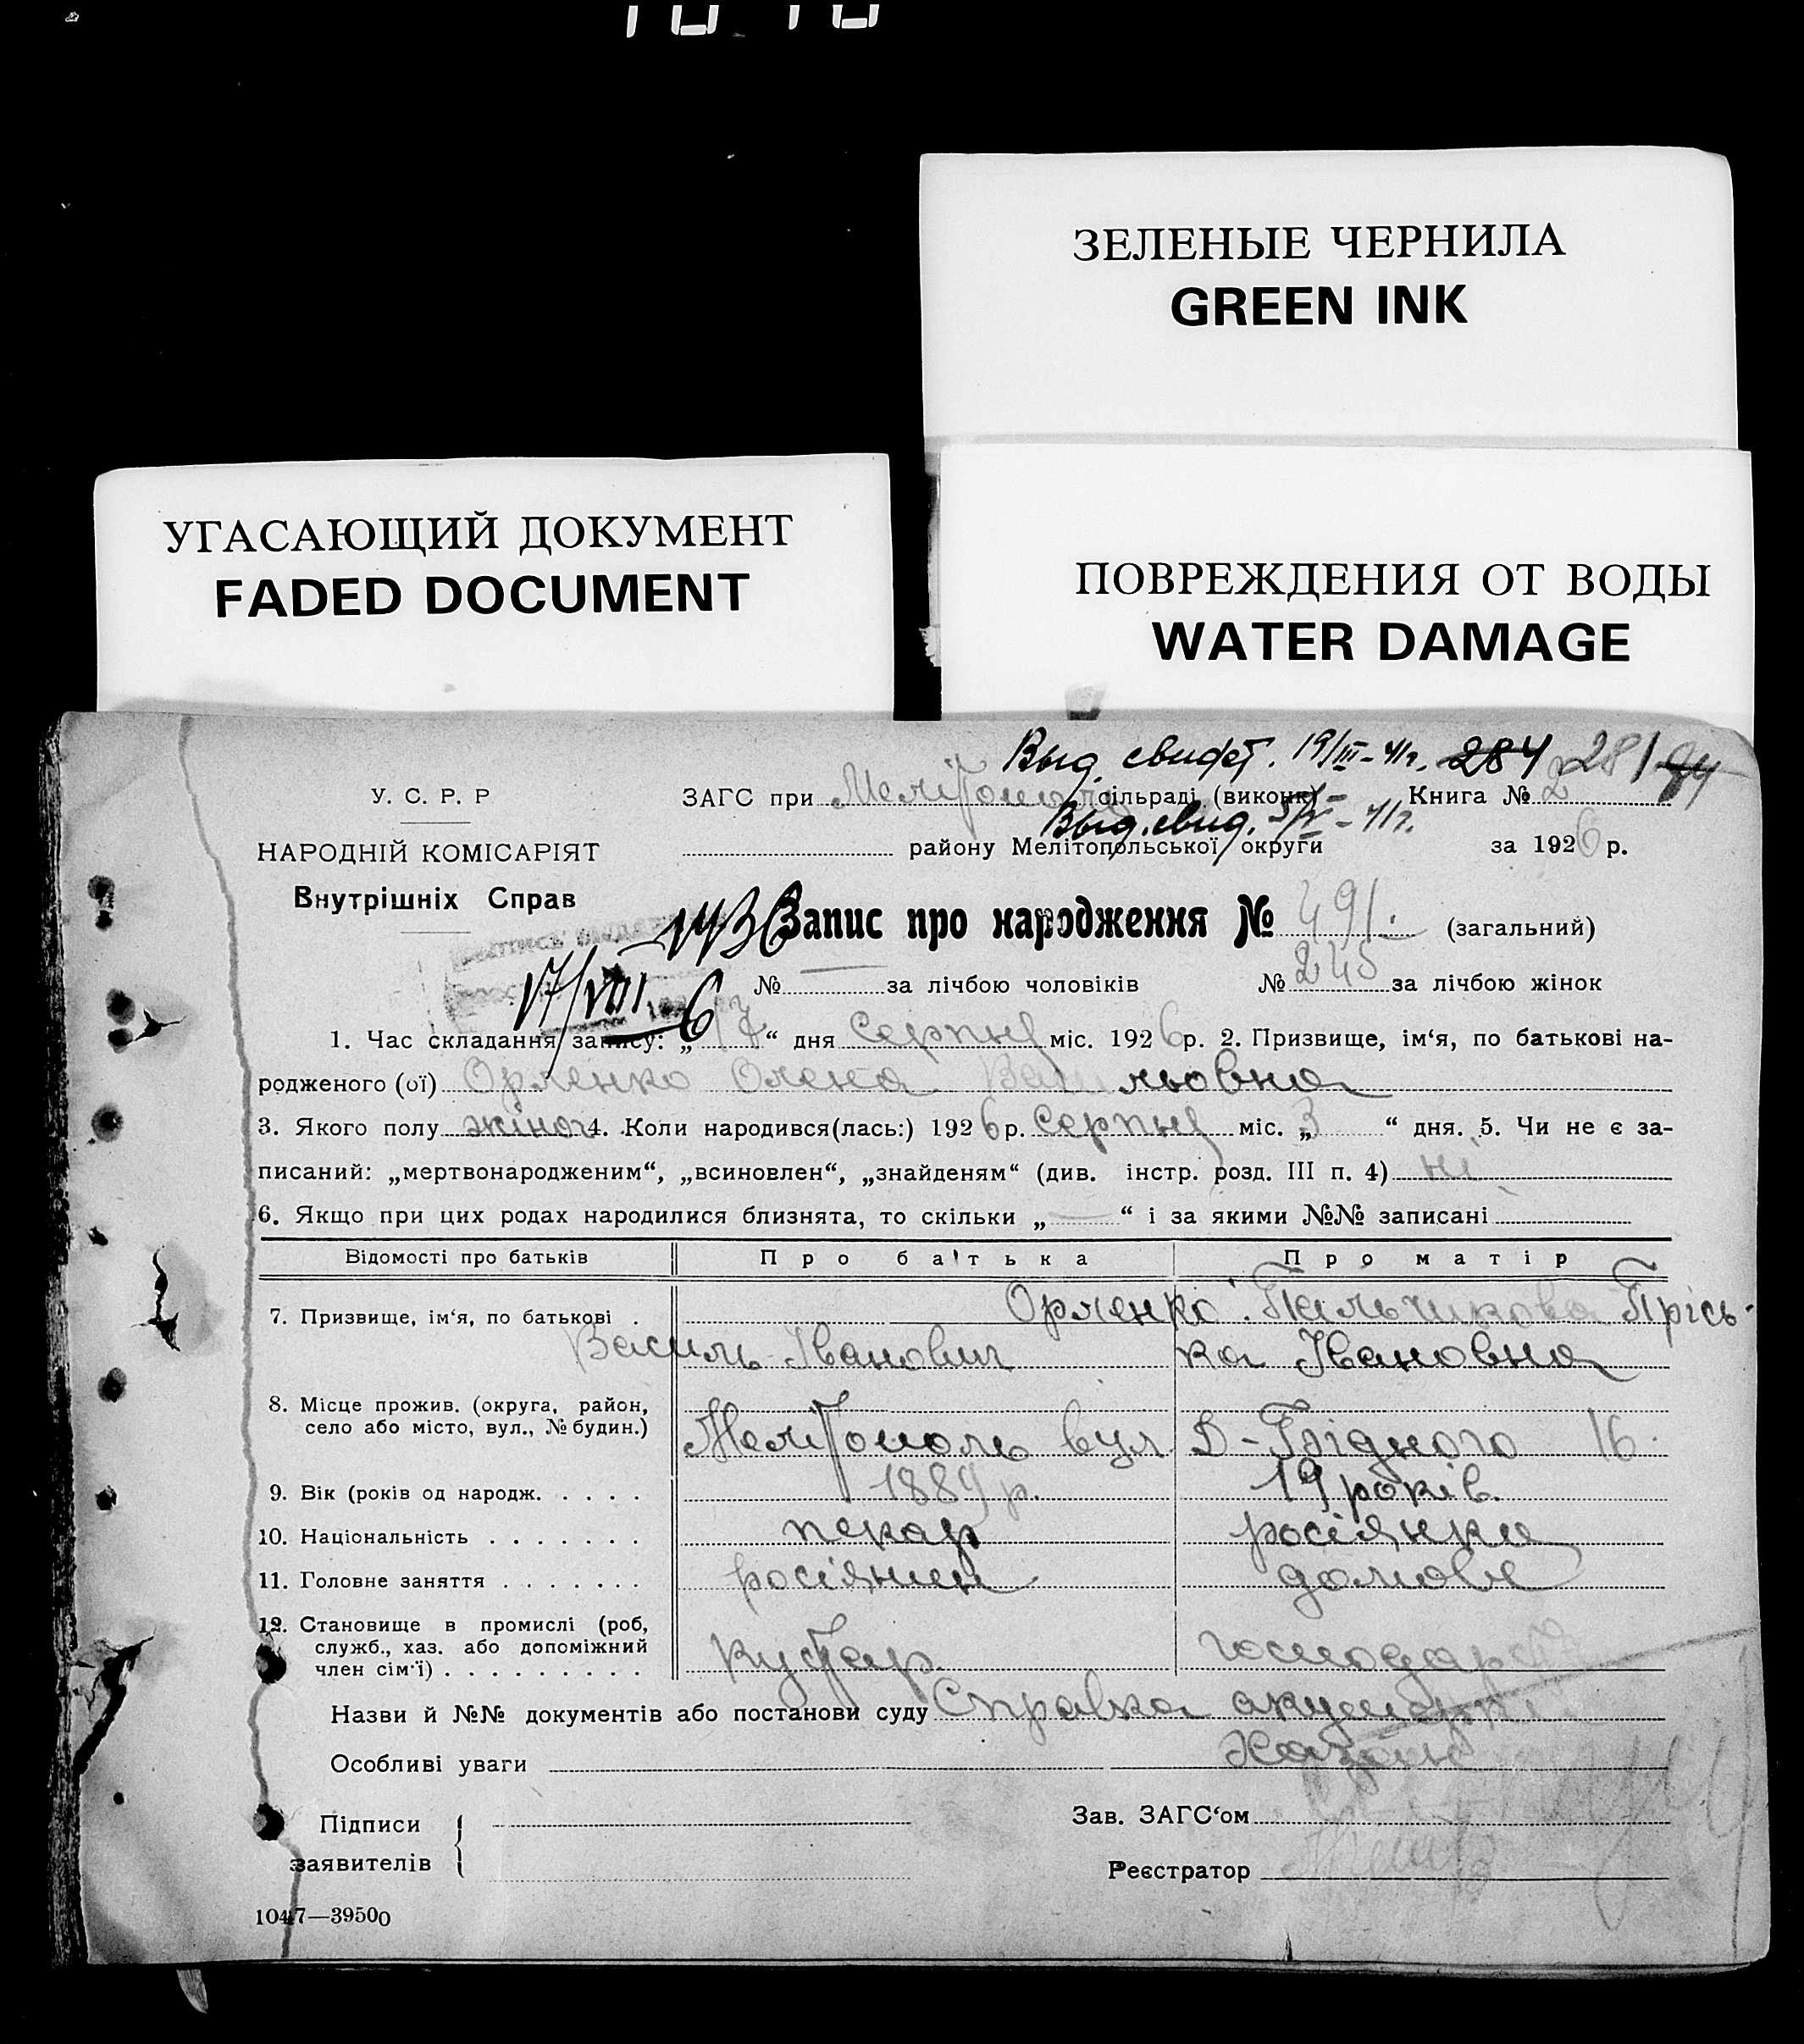 ЗЕЛЕНЫЕ ЧЕРНИЛА
GREEN INK
УГАСАЮЩИЙ ДОКУМЕНТ
FADED DOCUMENT
ПОВРЕЖДЕНИЯ ОТ ВОДЫ
WATER DAMAGE
Выд. свидет. 19/III-41г. 284 281
У. С. Р. Р
ЗАГС при Мелітополь сільраді (виконк) Книга № 2
Выд. свид. 5/V-41г.
НАРОДНІЙ КОМІСАРІЯТ
району Мелітопольської округи за 1926 р.
Внутрішніх Справ
Запис про народження № 491. (загальний)
17/VIII
№ — за лічбою чоловіків № 245 за лічбою жінок
1. Час складання запису: „17“ дня Серпня міс. 1926 р. 2. Призвище, ім‘я, по батькові на-
родженого (ої) Орленко Олена Васильовна
3. Якого полу жіноч 4. Коли народився(лась:) 1926 р. Серпня міс. „3“ дня. 5. Чи не є за-
писаний: „мертвонародженим“, „всиновлен“, „знайденям“ (див. інстр. розд. III п. 4) ні
6. Якщо при цих родах народилися близнята, то скільки „—“ і за якими №№ записані
Відомості про батьків Про батька Про матір
7. Призвище, ім‘я, по батькові . Орленко Пальчикова Прісь-
Василь Іванович ка Івановна
8. Місце прожив. (округа, район,
село або місто, вул., № будин.) Мелітополь вул. Д-Бідного 16.
9. Вік (років од народж. . . . . 1889 р. 19 років.
10. Національність . . . . . . . пекар росіянка
11. Головне заняття . . . . . . . росіянин домове
12. Становище в промислі (роб,
служб., хаз. або допоміжний
член сім‘ї) . . . . . . . . . кустар господар
Назви й №№ документів або постанови суду Справка акушерки
Особливі уваги
Підписи
заявителів
Зав. ЗАГС‘ом
Реєстратор
1047—39500